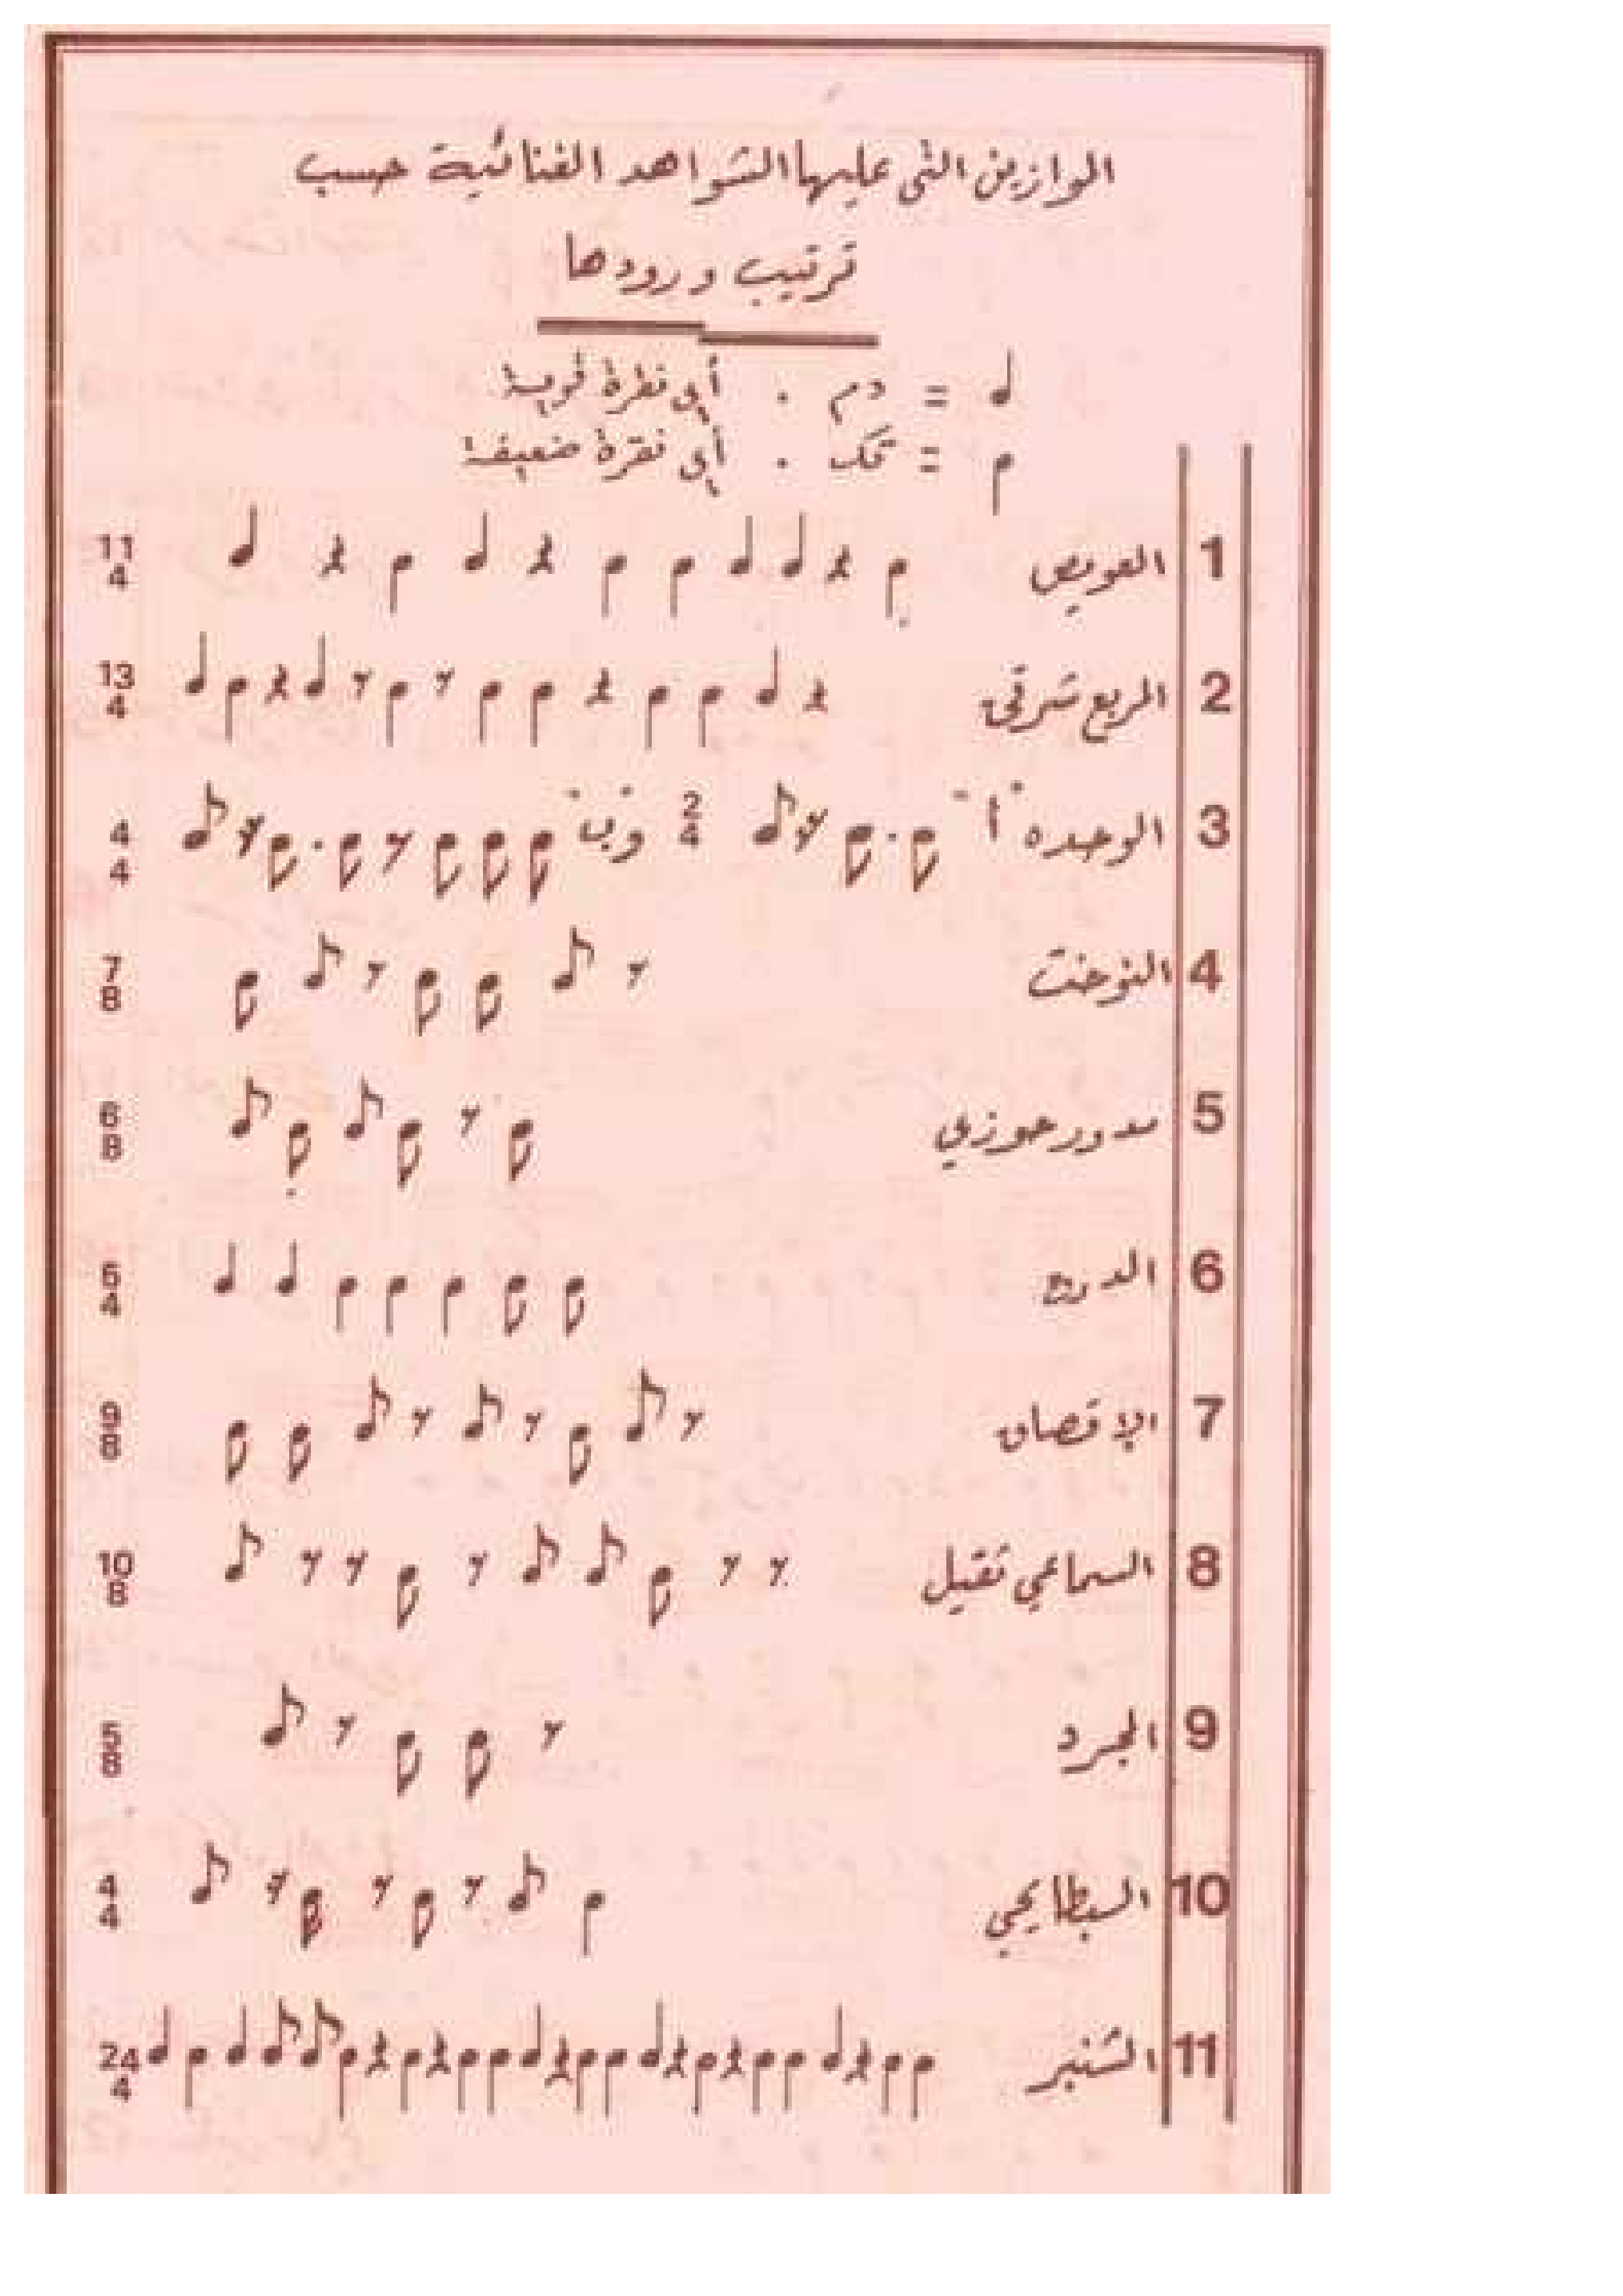 الموازين التى عليها الشواهد الغنائية حسب
ترتيب ورودها
= دم . أي نقرة قوية
= تك . أي نقرة ضعيفة
1 العويص 11/4
2 المربع شرقى 13/4
3 الوحده "أ" 2/4 و"ب" 4/4
4 النوخت 7/8
5 مدور حوزي 6/8
6 المدرج 5/4
7 الاقصاق 9/8
8 السماعي ثقيل 10/8
9 المجرد 5/8
10 البطايحي 4/4
11 الشنبر 24/4